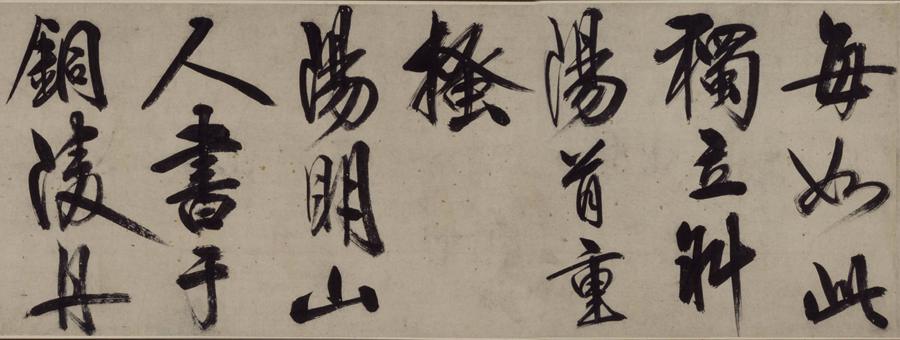 每如此
獨立斜
陽首重
搔
陽明山
人書于
銅陵舟